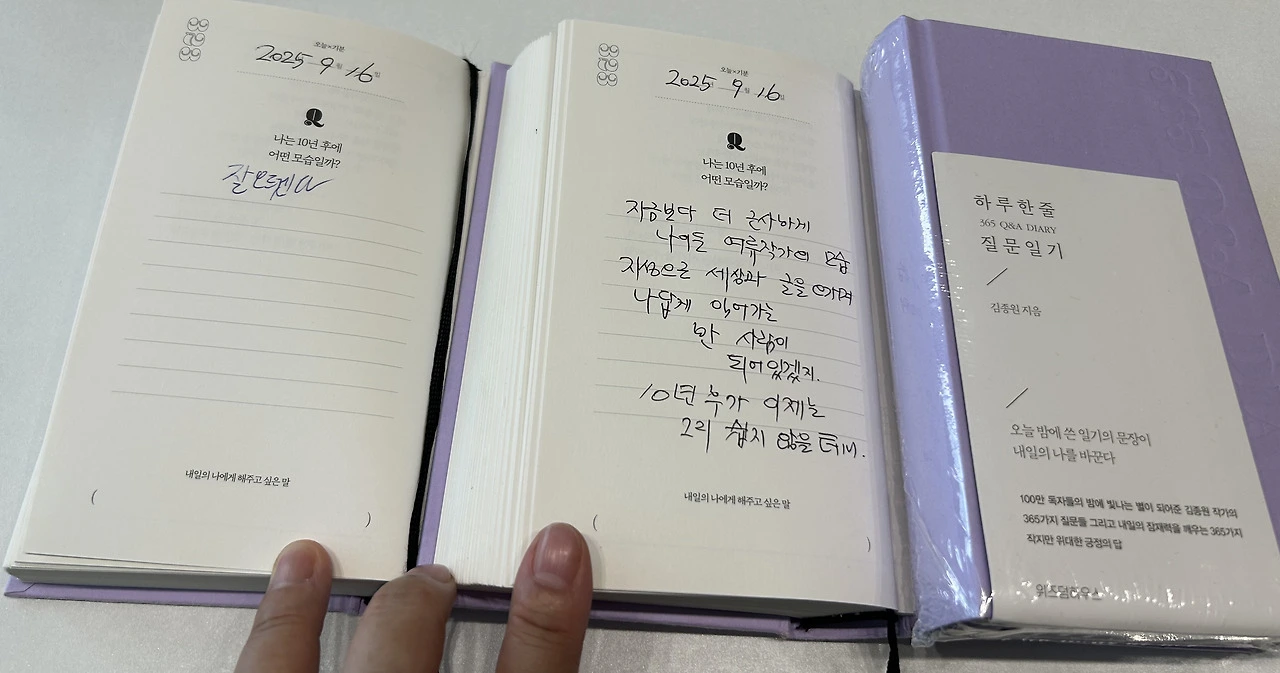 오늘×기분
2025년 9월 16일
Q
나는 10년 후에
어떤 모습일까?
내일의 나에게 해주고 싶은 말
( )
오늘×기분
2025년 9월 16일
Q
나는 10년 후에
어떤 모습일까?
지금보다 더 근사하게
나이든 여류작가의 모습
지성으로 세상과 글을 여기며
나답게 익어가는
한 사람이
되어있겠지.
10년 후가 이제는
그리 쉽지 않을 테니.
내일의 나에게 해주고 싶은 말
( )
하루 한 줄
365 Q&A DIARY
질문 일기
김종원 지음
오늘 밤에 쓴 일기의 문장이
내일의 나를 바꾼다
100만 독자들의 밤에 빛나는 별이 되어준 김종원 작가의
365가지 질문들 그리고 내일의 잠재력을 깨우는 365가지
작지만 위대한 긍정의 답
위즈덤하우스